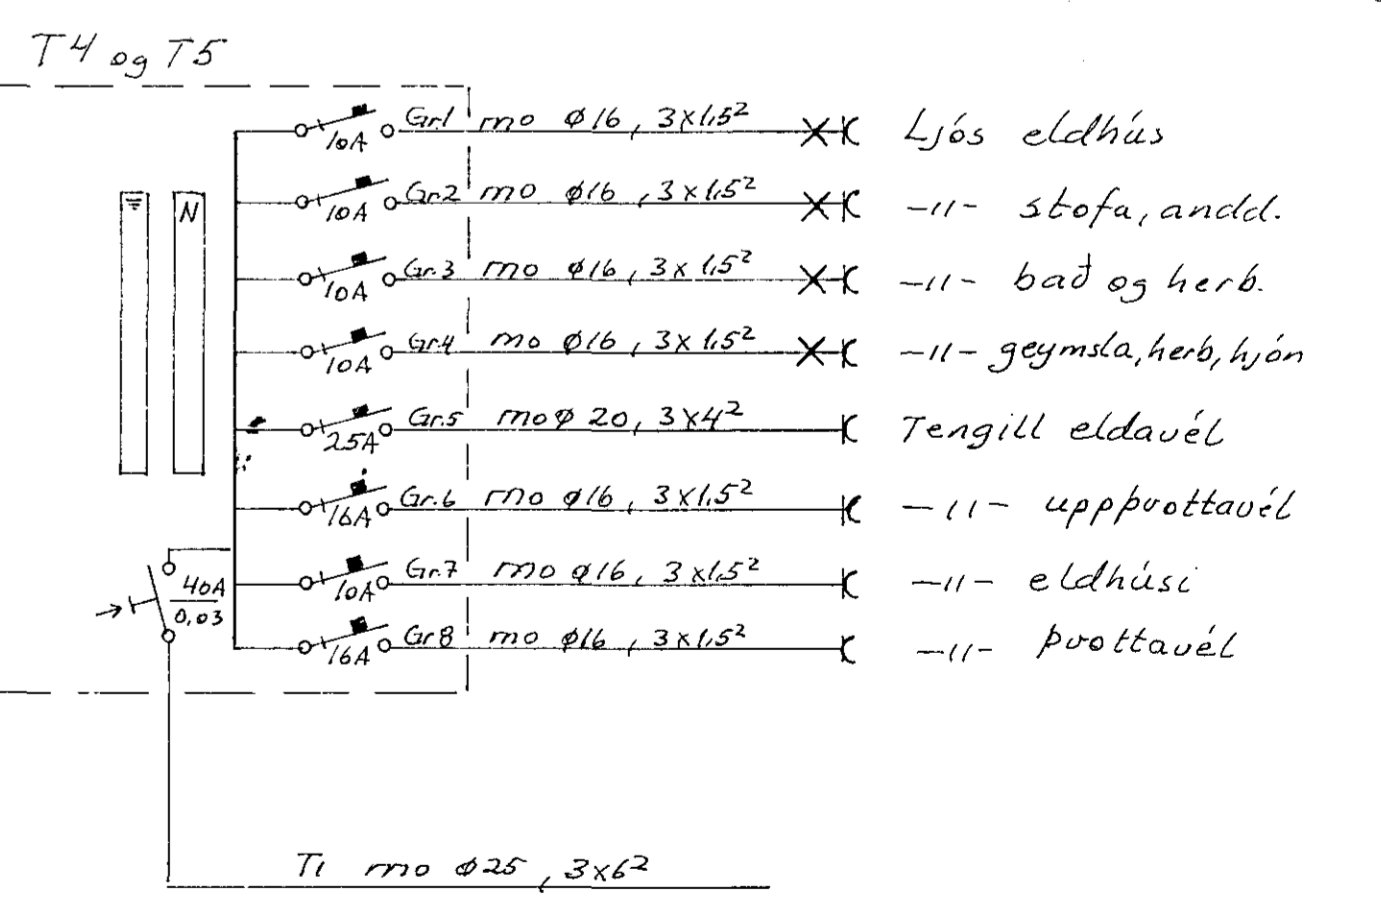 T4 og T5
Gr.1 mo ø16, 3x1,5² Ljós eldhús
10A
Gr.2 mo ø16, 3x1,5² -〃- stofa, andd.
10A
N
Gr.3 mo ø16, 3x1,5² -〃- bað og herb.
10A
Gr.4 mo ø16, 3x1,5² -〃- geymsla, herb, hjón
10A
Gr.5 mo ø20, 3x4² Tengill eldavél
25A
Gr.6 mo ø16, 3x1,5² -〃- uppþvottavél
16A
Gr.7 mo ø16, 3x1,5² -〃- eldhúsi
10A
40A
0,03
Gr8 mo ø16, 3x1,5² -〃- þvottavél
16A
T1 mo ø25, 3x6²